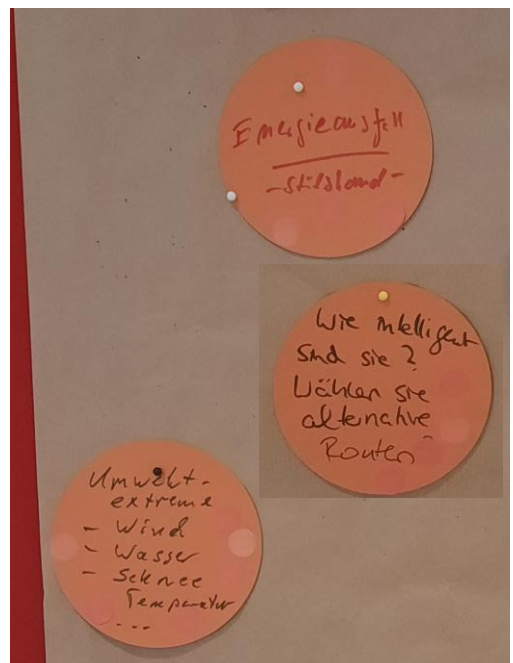 Energieausfall
- Stillstand -
Wie intelligent
sind sie?
Wählen sie
alternative
Routen?
Umwelt-
extreme
- Wind
- Wasser
- Schnee
Temperatur
...